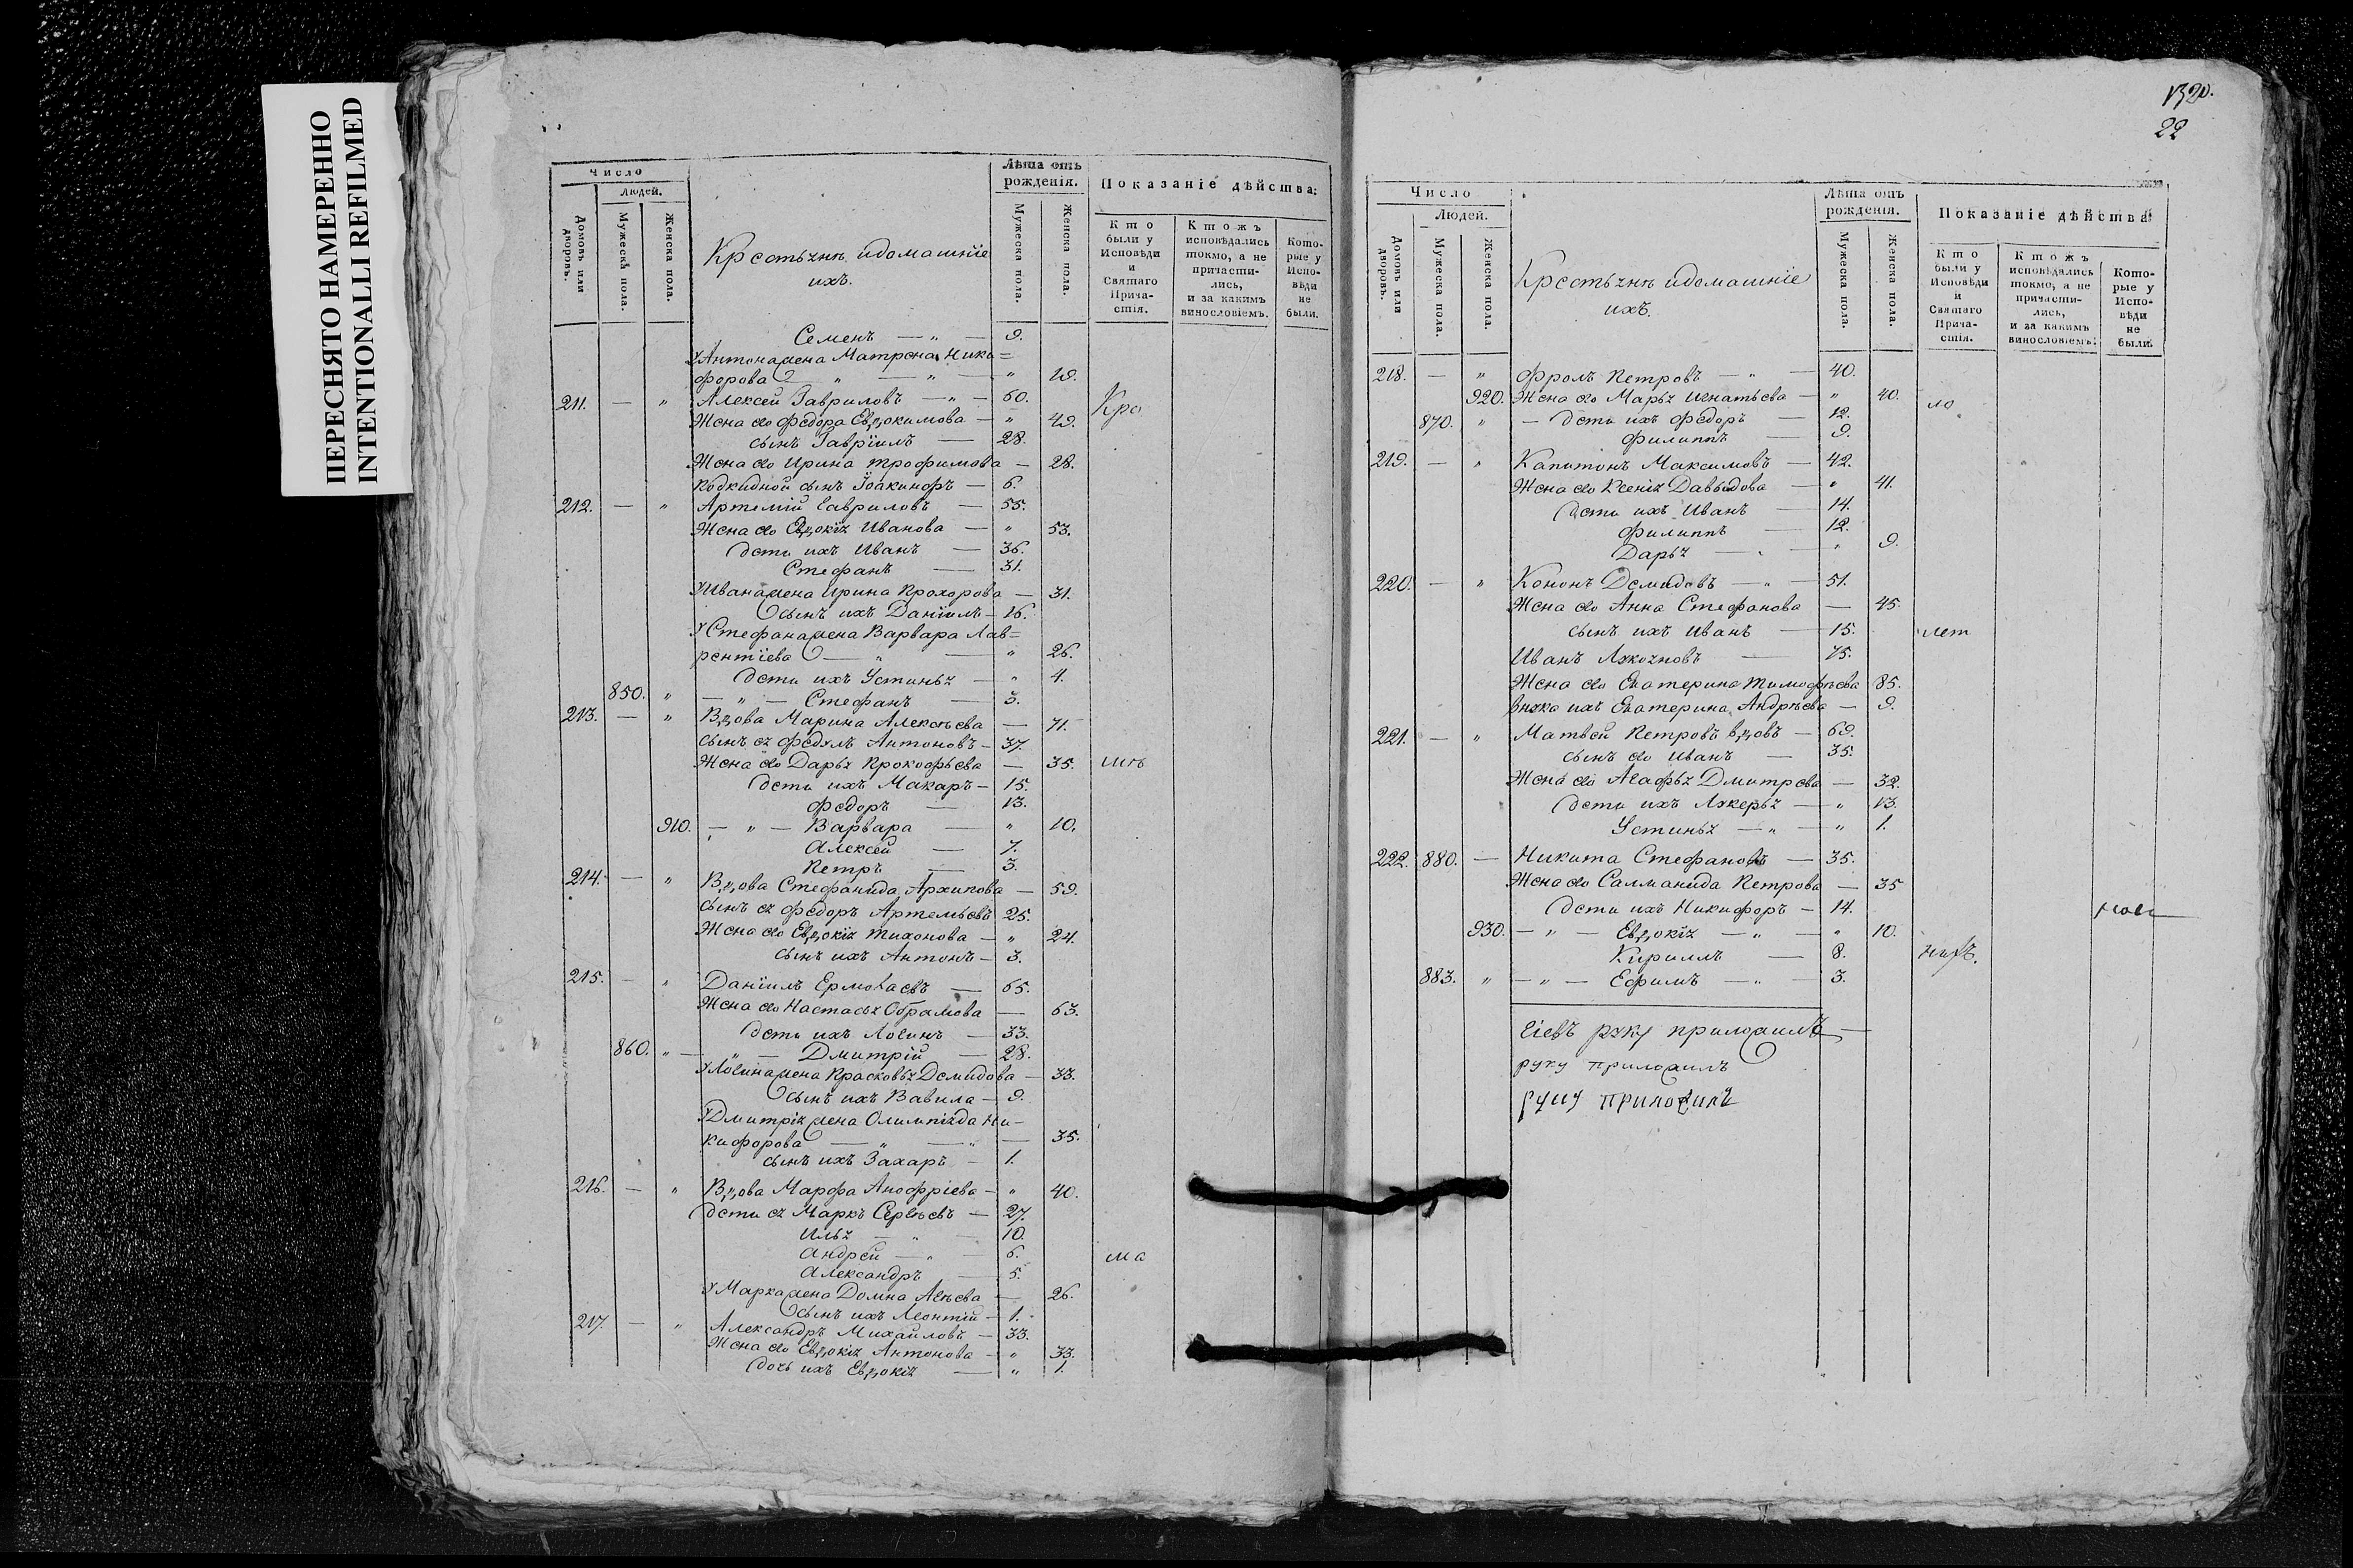 ПЕРЕСНЯТО НАМЕРЕННО
INTENTIONALLI REFILMED
Число
Людей.
Домовъ или дворовъ.
Мужескъ пола.
Женска пола.
Крестьяне идомашнїе
ихъ.
Лѣта отъ рожденія.
Мужеска пола.
Женска пола.
Показаніе дѣйства:
Кто были у Исповѣди и Святаго Причастія.
Ктожъ исповѣдались токмо, а не причастились, и за какимъ винословіемъ.
Которые у Исповѣди не были.
Семенъ — „ — 9.
У Антона жена Матрена Ники=
форова — „ — „ — „ 19.
211. — „ Алексей Гавриловъ — „ — 60. Кра
Жена его Федора Евдокимова — „ 49.
сынъ Гаврїилъ — 28.
Жена его Ирина Трофимова — 28.
Подкидной сынъ Їоакинфъ — 6.
212. — „ Артемій Гавриловъ — 55.
Жена его Евдокїя Иванова — „ 53.
Дети ихъ Иванъ — 36.
Стефанъ — 31.
У Ивана жена Ирина Прохорова — 31.
Сынъ ихъ Данїилъ — 16.
У Стефана жена Варвара Лав=
рентїева — „ — „ 26.
Дети ихъ Устинья — „ 4.
850. „ — „ — Стефанъ — 3.
213. — „ Вдова Марина Алексѣева — 71.
Сынъ ея Федулъ Антоновъ — 37.
Жена его Дарья Прокофьева — 35. инъ
Дети ихъ Макаръ — 15.
Федоръ — 13.
910. — „ — Варвара — „ 10.
Алексей — 7.
Петръ — 3.
214. — „ Вдова Стефанида Архипова — 59.
Сынъ ея Федоръ Артемьевъ 25.
Жена его Евдокїя Тихонова — „ 24.
Сынъ ихъ Антонъ — 3.
215. — „ Данїилъ Ермолаевъ — 65.
Жена его Настасья Обрамова — 63.
Дети ихъ Логинъ — 33.
860. „ — „ — Дмитрїй — 28.
У Логина жена Прасковья Демидова — 33.
Сынъ ихъ Вавила — 9.
У Дмитрїя жена Олимпїяда Ни-
кифорова — „ — „ — 35.
Сынъ ихъ Захаръ — 1.
216. — „ Вдова Марфа Анофріева — „ 40.
Дети ея Маркъ Сергѣевъ — 27.
Илья — „ — 10.
Андрей — „ — 6. ма
Александръ — 5.
У Марка жена Домна Агѣева — 26.
Сынъ ихъ Леонтїй — 1.
217. — „ Александръ Михайловъ — 33.
Жена его Евдокїя Антонова — „ 33.
Дочь ихъ Евдокїя — „ 1.
1320.
22
Число
Людей.
Домовъ или дворовъ.
Мужеска пола.
Женска пола.
Крестьяне идомашнїе
ихъ.
Лѣта отъ рожденія.
Мужеска пола.
Женска пола.
Показаніе дѣйства
Кто были у Исповѣди и Святаго Причастія.
Ктожъ исповѣдались токмо, а не причастились, и за какимъ винословіемъ.
Которые у Исповѣди не были.
218. — „ Фролъ Петровъ — „ — 40.
920. Жена его Марья Игнатьева — „ 40. ло
870. „ — Дети ихъ Федоръ — 12.
Филиппъ — 9.
219. — „ Капитонъ Максимовъ — 42.
Жена его Ксенїя Давыдова — „ 41.
Дети ихъ Иванъ — 14.
Филиппъ — 12.
Дарья — „ — „ 9.
220. — „ Кононъ Демидовъ — „ — 51.
Жена его Анна Стефанова — 45.
Сынъ ихъ Иванъ — 15. лет
Иванъ Лукояновъ — 75.
Жена его Екатерина Тимофѣева 85.
Внука ихъ Екатерина Андрѣева — 9.
221. — „ Матвей Петровъ вдовъ — 69.
Сынъ его Иванъ — 35.
Жена его Агафья Дмитрева — 32.
Дети ихъ Лукерья — „ 13.
Устинья — „ — „ 1.
222. 880. — Никита Стефановъ — 35.
Жена его Салманида Петрова — 35
Дети ихъ Никифоръ — 14.
930. — „ — Евдокїя — „ — „ 10.
Кириллъ — 8.
883. „ — „ — Ефимъ — „ — 3.
гїевъ руку приложилъ —
руку приложилъ
руку приложилъ